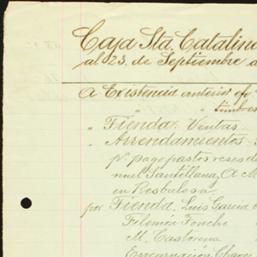 Caja Sta. Catalina
al 23 de Septiembre
A Existencia anterior
" " timbres
" Tienda: Ventas
" Arrendamientos
pr. pago pastos reses de
nuel Santillana, A M
en Resbalosa
por Tienda, Luis Garcia
Filemón
M. Castorena
Encarnación Chavez